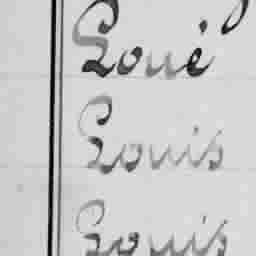 Loué
Louis
Louis